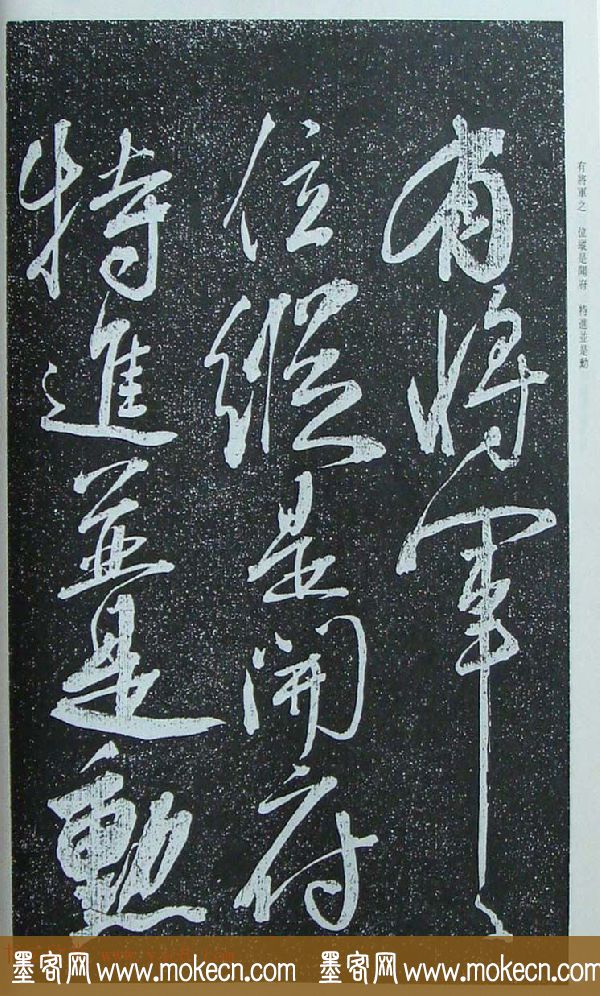 有將軍之
位縱是開府
特進並是勳
有將軍之 位縱是開府 特進並是勳
墨客网 www.mokecn.com 墨客网 www.mokecn.com